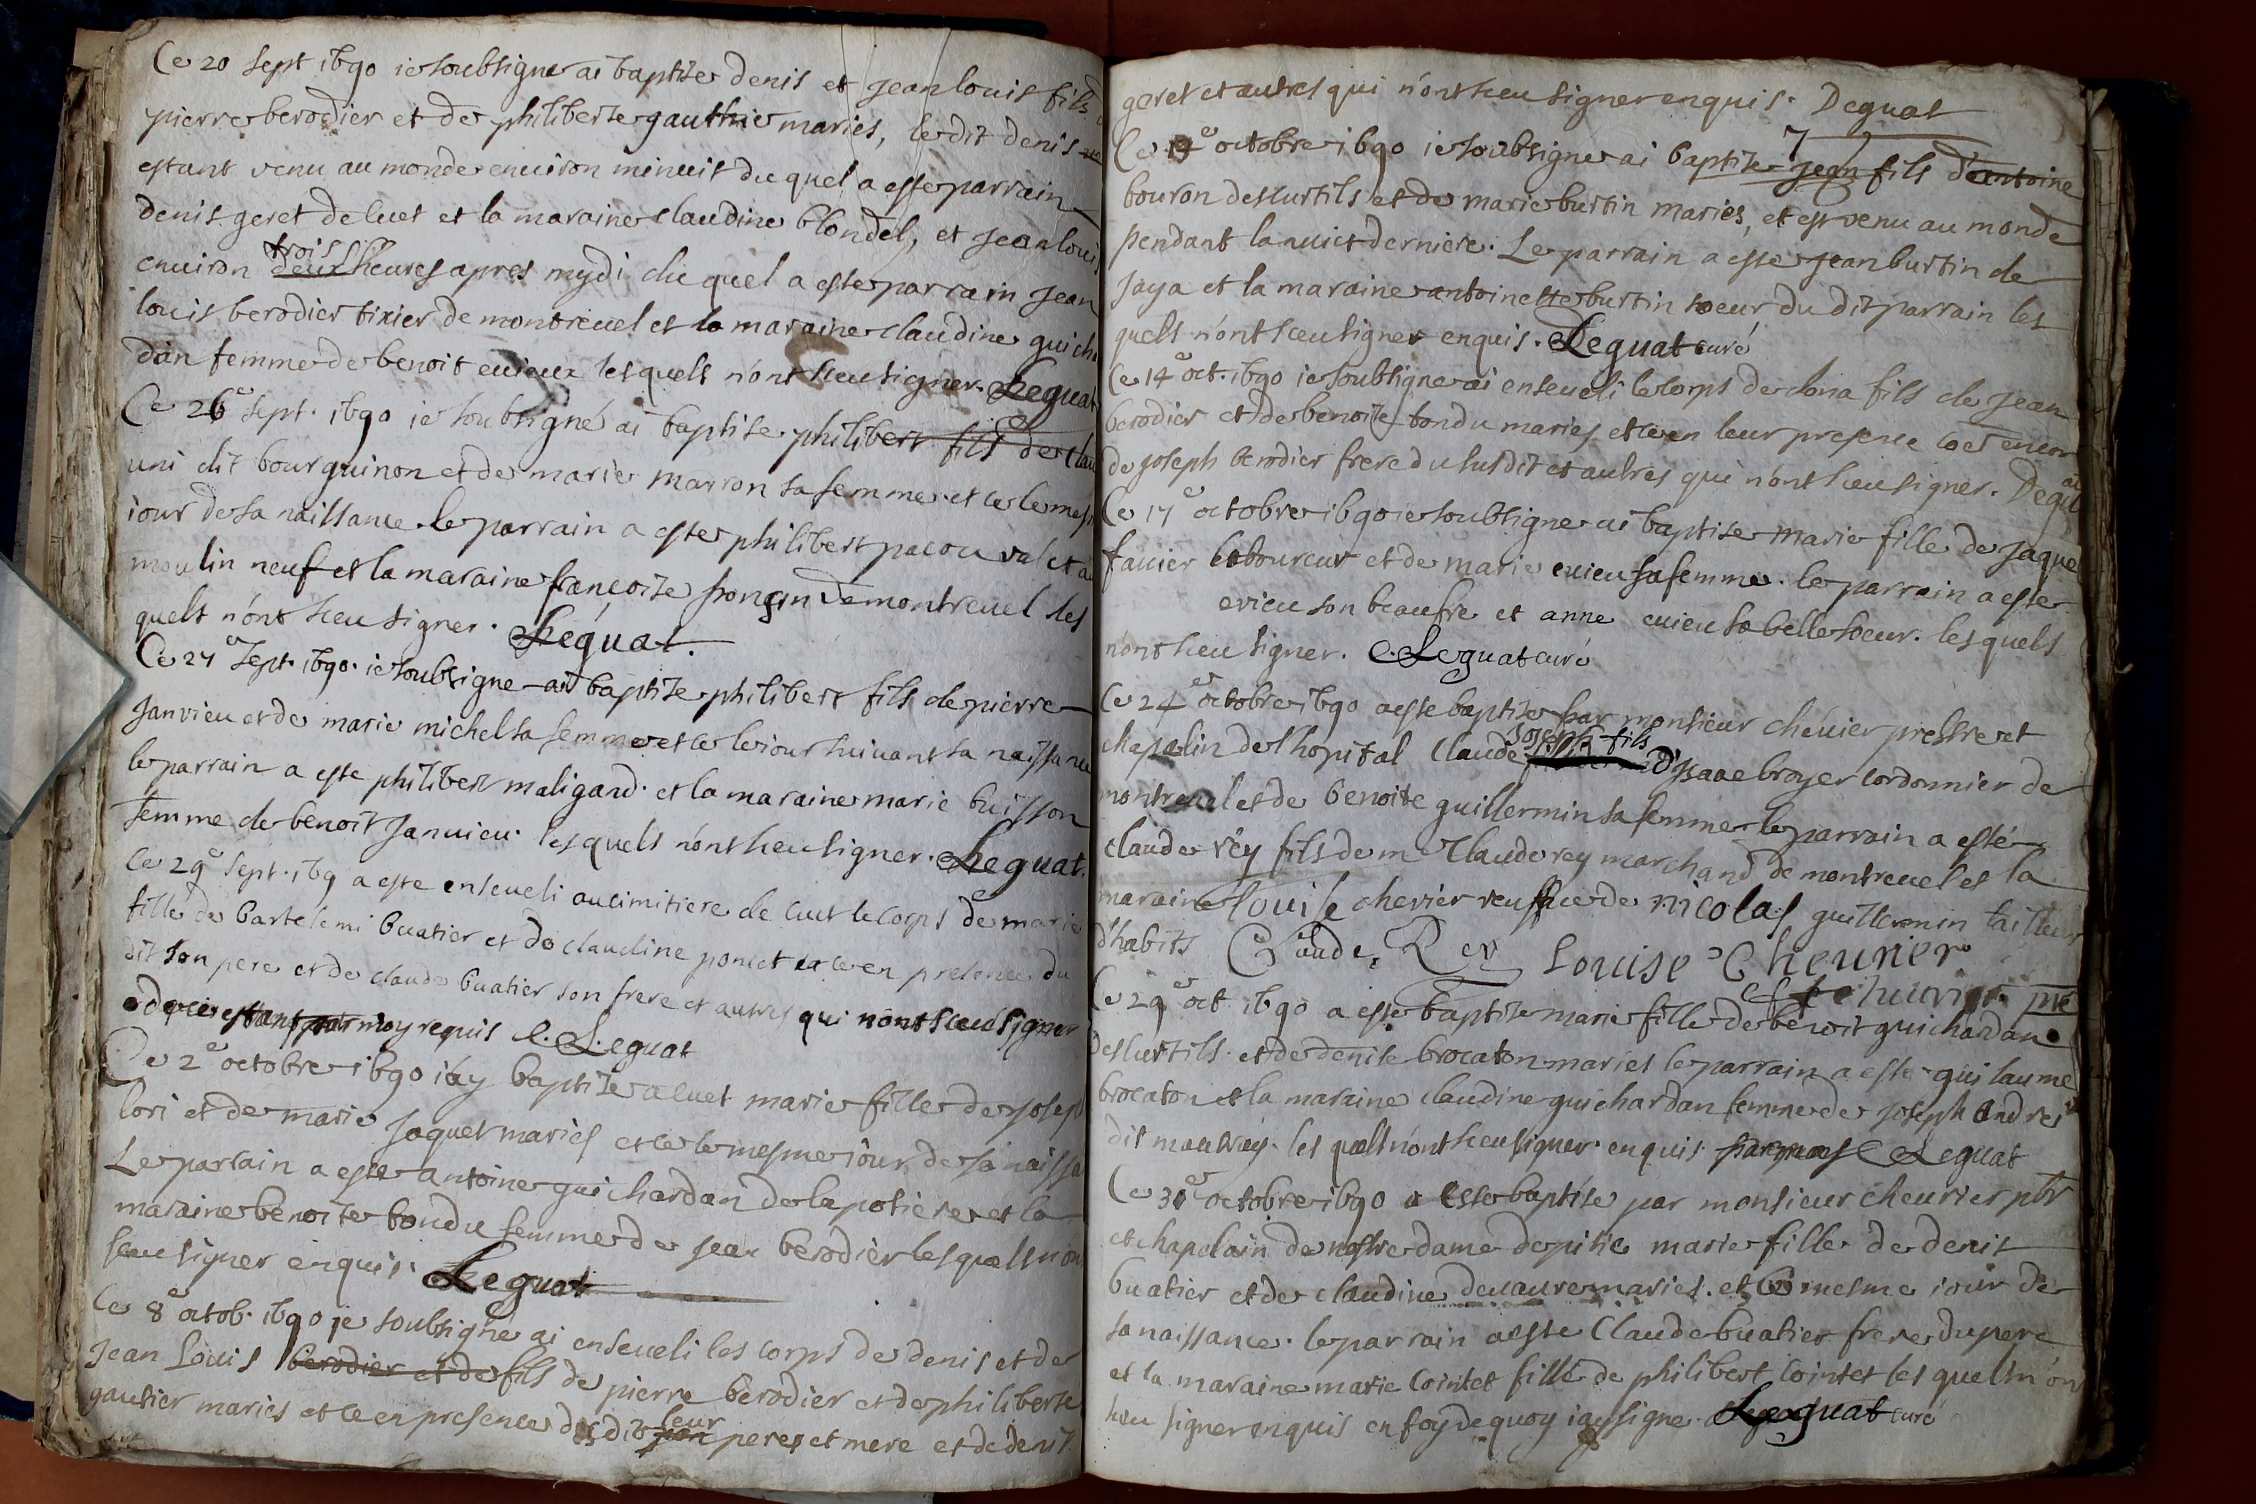 Ce 20 sept 1690 ie soubsigne ai baptise denis et jean louis fils
pierre berodier et de philiberte gauthie maries, le dit denis
estant venu au monde environ minuit du quel a este parrain
denis geret de cuet et la maraine claudine blondel, et jean louis
environ trois deux heures apres mydi du quel a este parrain jean
louis berodier tixier de montrevel et la maraine claudine guicha
dan femme de benoit evieux les quels n'ont sceu signer. Leguat
Ce 26e sept. 1690 ie soubsigné ai baptise philibert fils de clau
uni dit bourguinon et de marie marron sa femme et ce le mesme
iour de sa naissance. le parrain a este philibert pacou valet au
moulin neuf et la maraine françoise ponsin de montrevel les
quels n'ont sceu signer. Leguat.
Ce 27e sept. 1690. ie soubsigne ai baptise philibert fils de pierre
janvieu et de marie michel sa femme et ce le iour suivant sa naissance
le parrain a este philibert maligand. et la maraine marie buisson
femme de benoit janvieu. les quels n'ont sceu signer. Leguat.
Ce 29e sept. 169 a este enseveli au cimitiere de cuet le corps de marie
fille de bartelemi buatier et de claudine poncet et ce en presence du
dit son pere et de claude buatier son frere et autres qui n'ont sceu signer
de ce estant par moy requis C. Leguat
Ce 2e octobre 1690 i'ay baptise a cuet marie fille de joseph
lori et de marie jaquet maries et ce le mesme iour de sa naissa
Le parrain a este antoine guichardan de la potiere et la
maraine benoite tondu femme de jean berodier les quels n'on
sceu signer enquis. Leguat
Ce 8e octob. 1690 ie soubsigne ai enseveli les corps de denis et de
Jean Louis berodier et de fils de pierre berodier et de philiberte
gautier maries et ce en presence des dit leur son peres et mere et de denis
geret et autres qui n'ont sceu signer enquis. Leguat
Ce 13e octobre 1690 ie soubsigne ai baptise jean fils d'antoine
bouron des curtils et de marie burtin maries, et est venu au monde
pendant la nuict derniere. Le parrain a este jean burtin de
jaya et la maraine antoinette burtin soeur du dit parrain les
quels n'ont sceu signer enquis. Leguat curé
Ce 14e oct. 1690 ie soubsigne ai enseveli le corps de fils de jean
berodier et de benoite tondu maries et ce en leur presence
de joseph berodier frere du susdit et autres qui n'ont sceu signer. Leguat
Ce 17e octobre 1690 ie soubsigne ai baptise marie fille de jaque
favier laboureur et de marie evieu sa femme. le parrain a este
evieu son beaufre et anne evieu sa belle soeur. les quels
n'ont sceu signer. C. Leguat curé
Ce 24e octobre 1690 a este baptise par monsieur chévrier prestre et
chapelin de l'hopital Claude joseph fils d'isaac broyer cordonnier de
montrevel et de benoite guillermin sa femme le parrain a esté
claude rey fils de me Claude rey marchand de montrevel et la
maraine louise chevrier veufve de nicolas guillermin tailleur
d'habits Claude Rey Louise Cheurier
Cheuvrier pre
Ce 29e oct. 1690 a este baptise marie fille de benoit guichardan
des curtils. et de denise brocaton maries le parrain a este guilaume
brocaton et la maraine claudine guichardan femme de joseph andrei
dit mauvrey. les quels n'ont sceu signer enquis Leguat
Ce 30e octobre 1690 a este baptise par monsieur cheurier pbr
et chapelain de nostre dame de pitie marie fille de denis
buatier et de claudine devaure maries. et le mesme iour de
sa naissance. le parrain a este Claude buatier frere du pere
et la maraine marie Cointet fille de philibert Cointet les quels n'on
sceu signer enquis en foy de quoy i'ay signe. Leguat curé